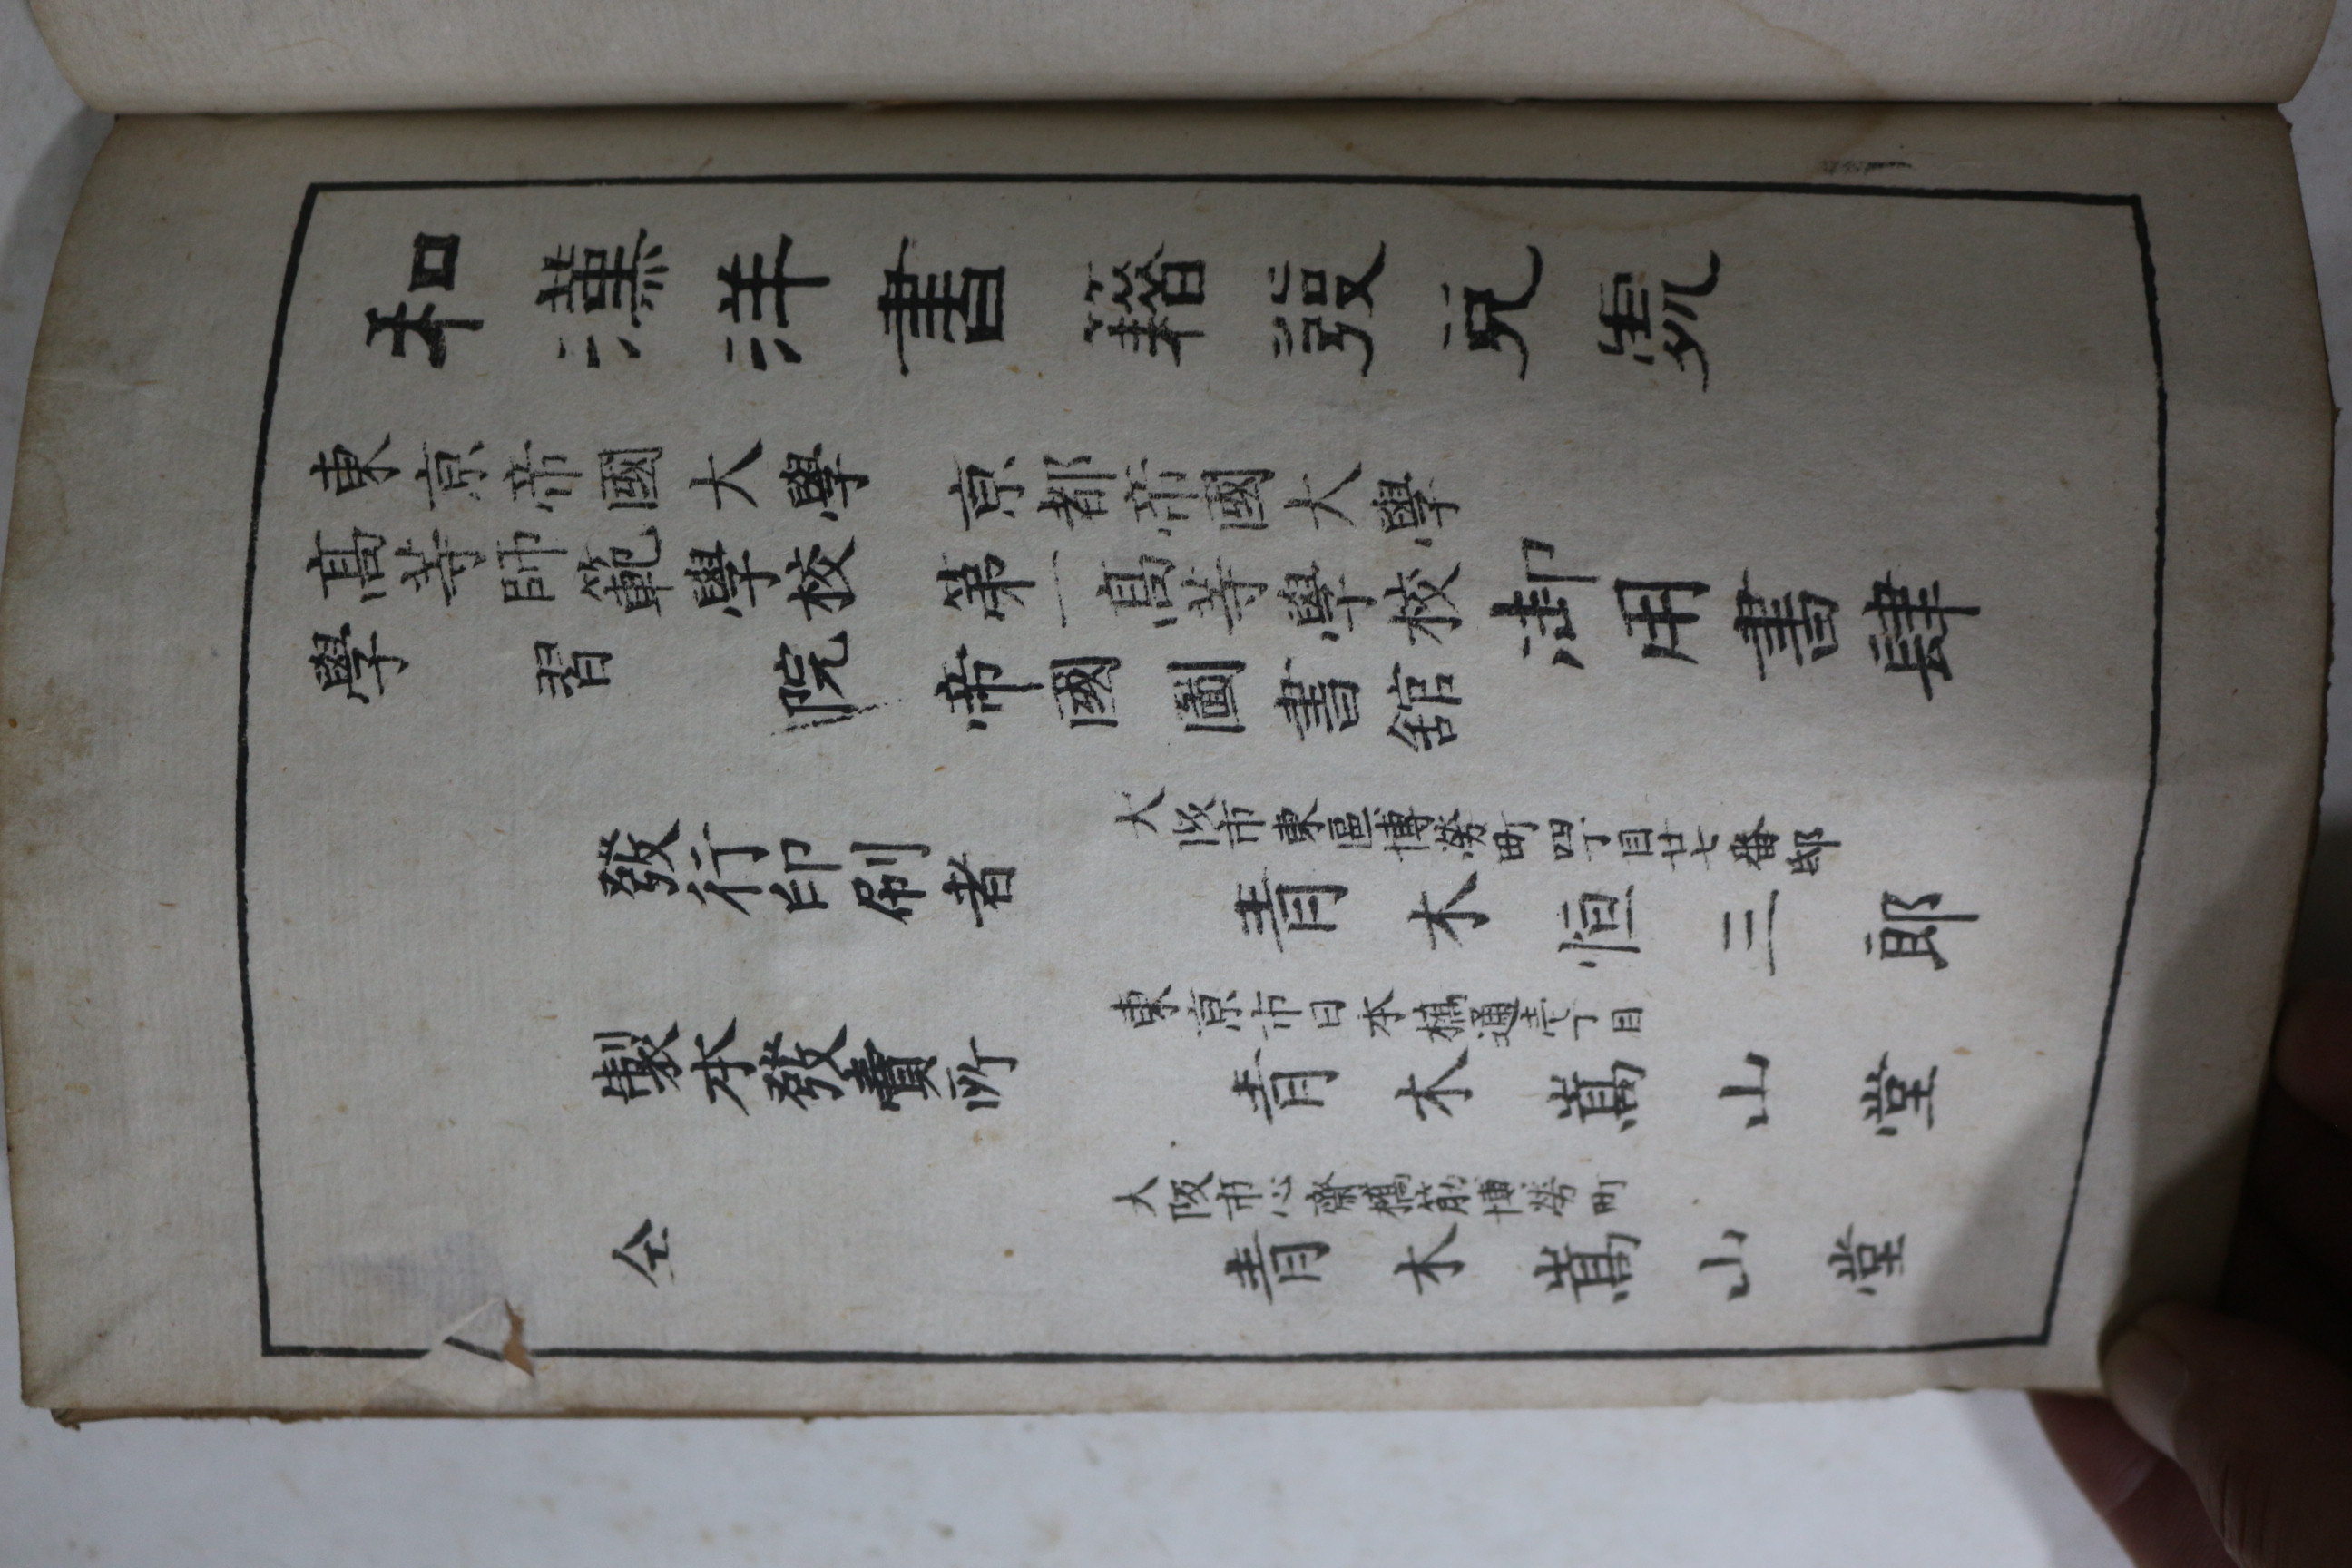 和漢洋書籍發兌處
東京帝國大學 京都帝國大學
高等師範學校 第一高等學校
學習院 帝國圖書館
御用書肆
大阪市東區博勞町四丁目廿七番邸
發行印刷者 青木恒三郎
東京市日本橋通壹丁目
製本發賣所 青木嵩山堂
大阪市心齋橋筋博勞町
仝 青木嵩山堂